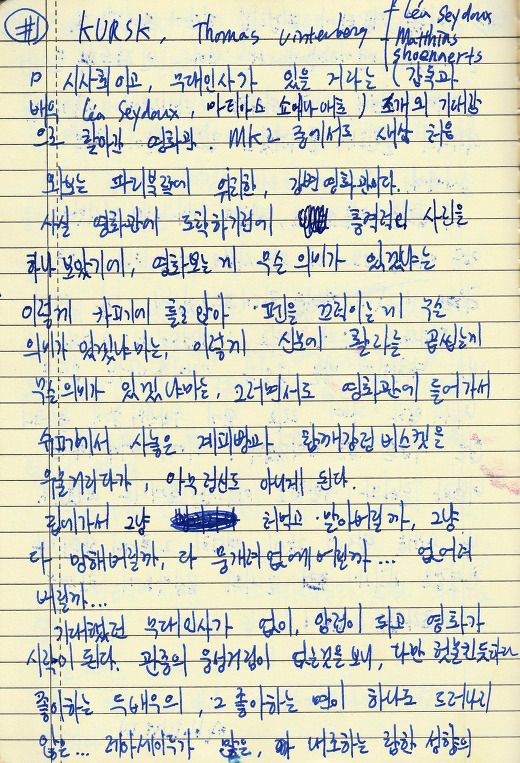 #1 KURSK, Thomas Vinterberg Léa Seydoux
Matthias
Shoenaerts
시사회이고, 무대인사가 있을 거라는 (감독과
배우 Léa Seydoux, 마티아스 쇼에나에츠) 의 기대감
으로 찾아간 영화관. MK2 중에서도 생삼 처음
와보는 파리북쪽에 위치한, 강변영화관이다.
사실 영화관에 도착하기전에 충격적인 사진을
하나 보았기에, 영화보는게 무슨 의미가 있겠냐는
이렇게 카페에 홀로 앉아 펜을 끄적이는게 무슨
의미가 있겠냐마는, 이렇게 신문에 곱씹는게
무슨의미가 있겠냐마는, 그러면서도 영화관에 들어가서
슈퍼에서 사놓은 계피빵과 참깨강정비스켓을
우물거리다가, 아무렇지도 아니게 된다.
집에가서 그냥 처먹고 말아버릴까, 그냥
다 망해버릴까, 다 뭉개려없애버릴까... 없어져
버릴까...
기대했던 무대인사가 없이, 암전이 되고 영화가
시작이 된다. 관중의 웅성거림이 없는것을 보니, 다만 헛물킨듯하다
좋아하는 두배우의, 그 좋아하는 면이 하나도 드러나지
않은... 레아세이두가 맡은, 내조하는 성향의